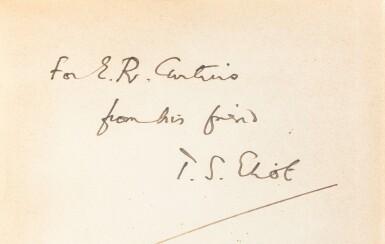 For E. R. Curtius
from his friend
T. S. Eliot